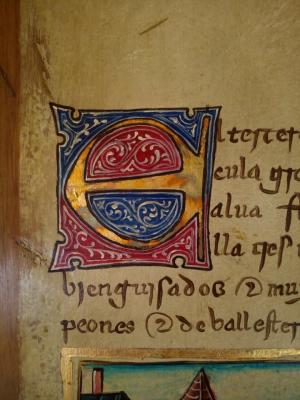 E l tercer
cula gra
alua f
lla ges
bien guisados 2 muy
peones 2 de ballester